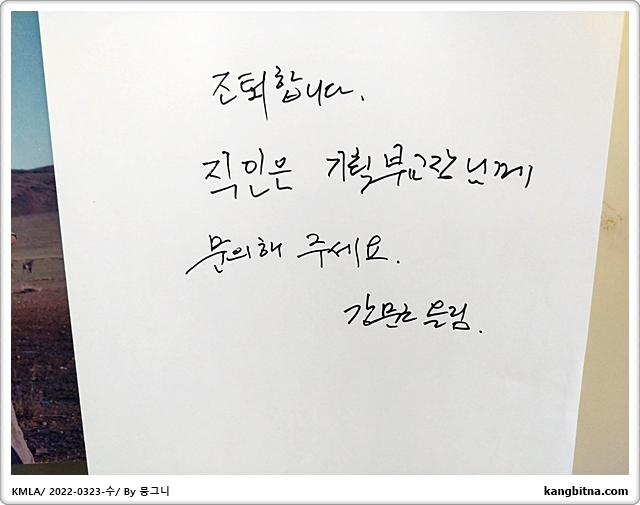 조퇴합니다.
직인은 기획부교장님께
문의해 주세요.
강문근 드림.
KMLA/ 2022-0323-수/ By 몽그니
kangbitna.com